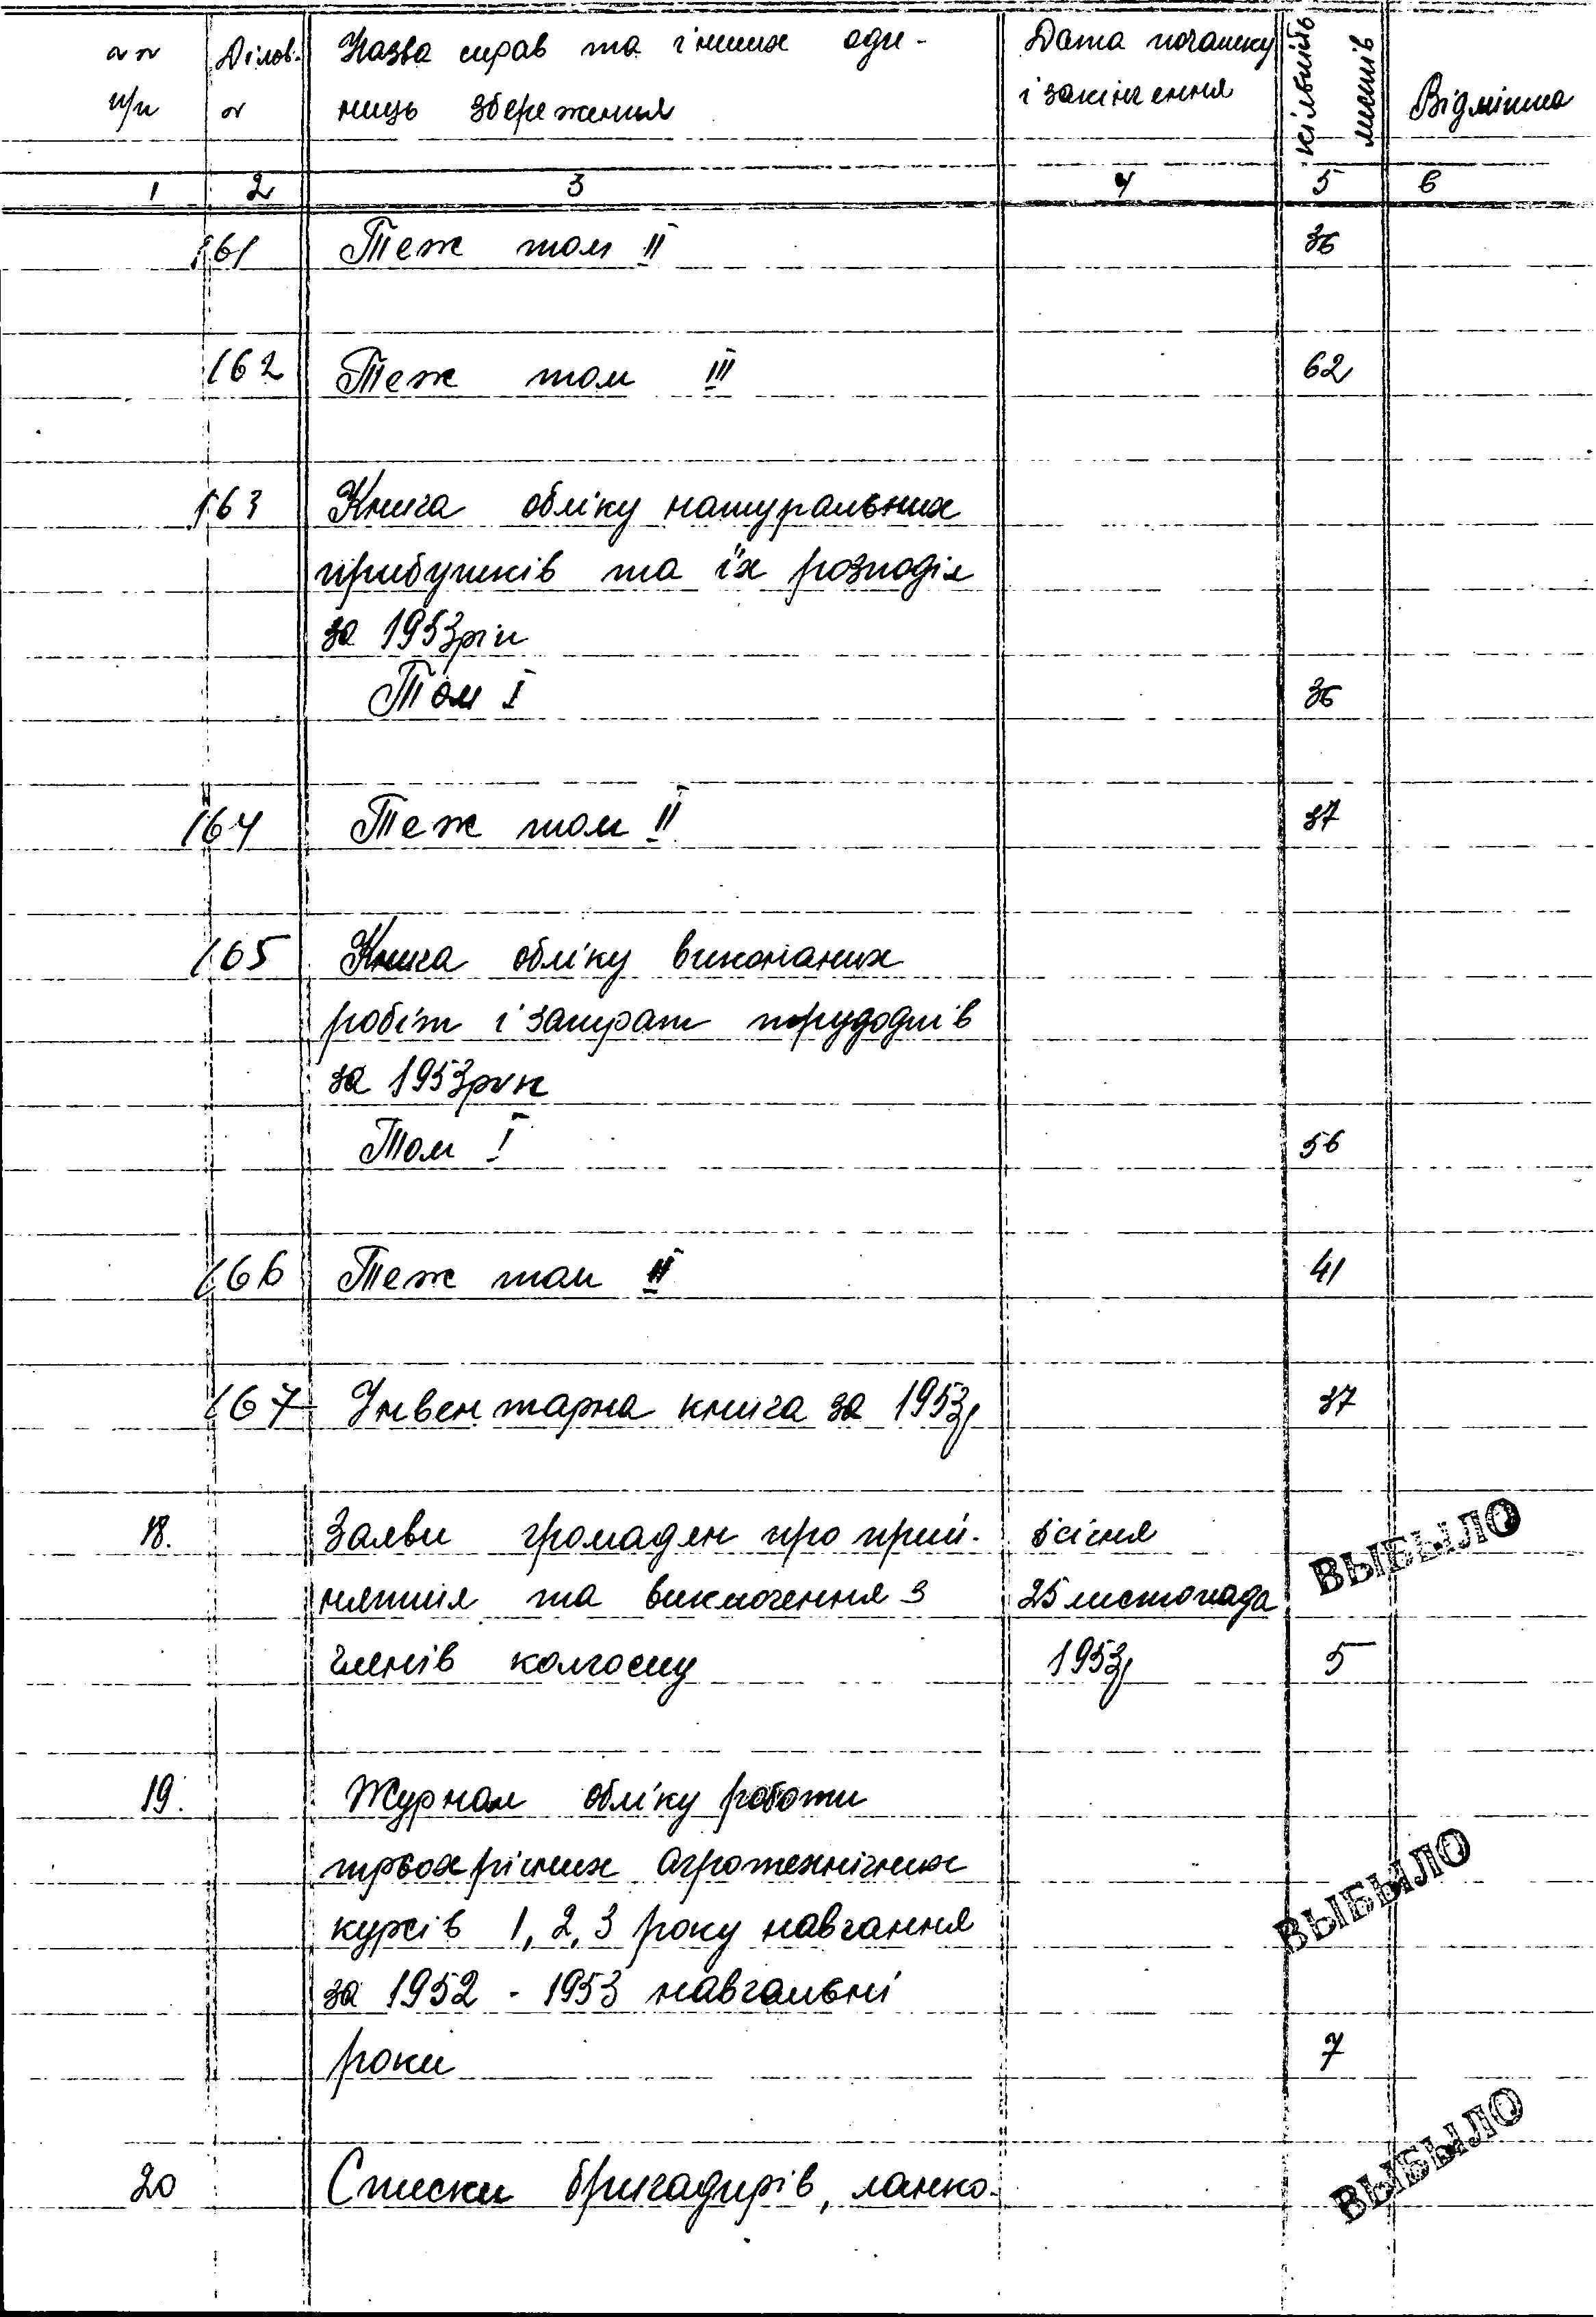 №№ Ділов. Назва справ та інших оди- Дата початку кількість листів
п/п № ниць збереження і закінчення Відмітка
1 2 3 4 5 6
161 Теж том II 36
162 Теж том III 62
163 Книга обліку натуральних
прибутків та їх розподіл
за 1953 рік
Том I 36
164 Теж том II 37
165 Книга обліку виконаних
робіт і затрат трудоднів
за 1953 рік
Том I 56
166 Теж том II 41
167 Інвентарна книга за 1953р 37
18. Заяви громадян про прий- січня ВЫБЫЛО
няття та виключення з 25 листопада
членів колгоспу 1953р 5
19. Журнал обліку роботи
трьох річних агротехнічних ВЫБЫЛО
курсів 1, 2, 3 року навчання
за 1952 - 1953 навчальні
роки 7
20 Списки бригадирів, ланко- ВЫБЫЛО